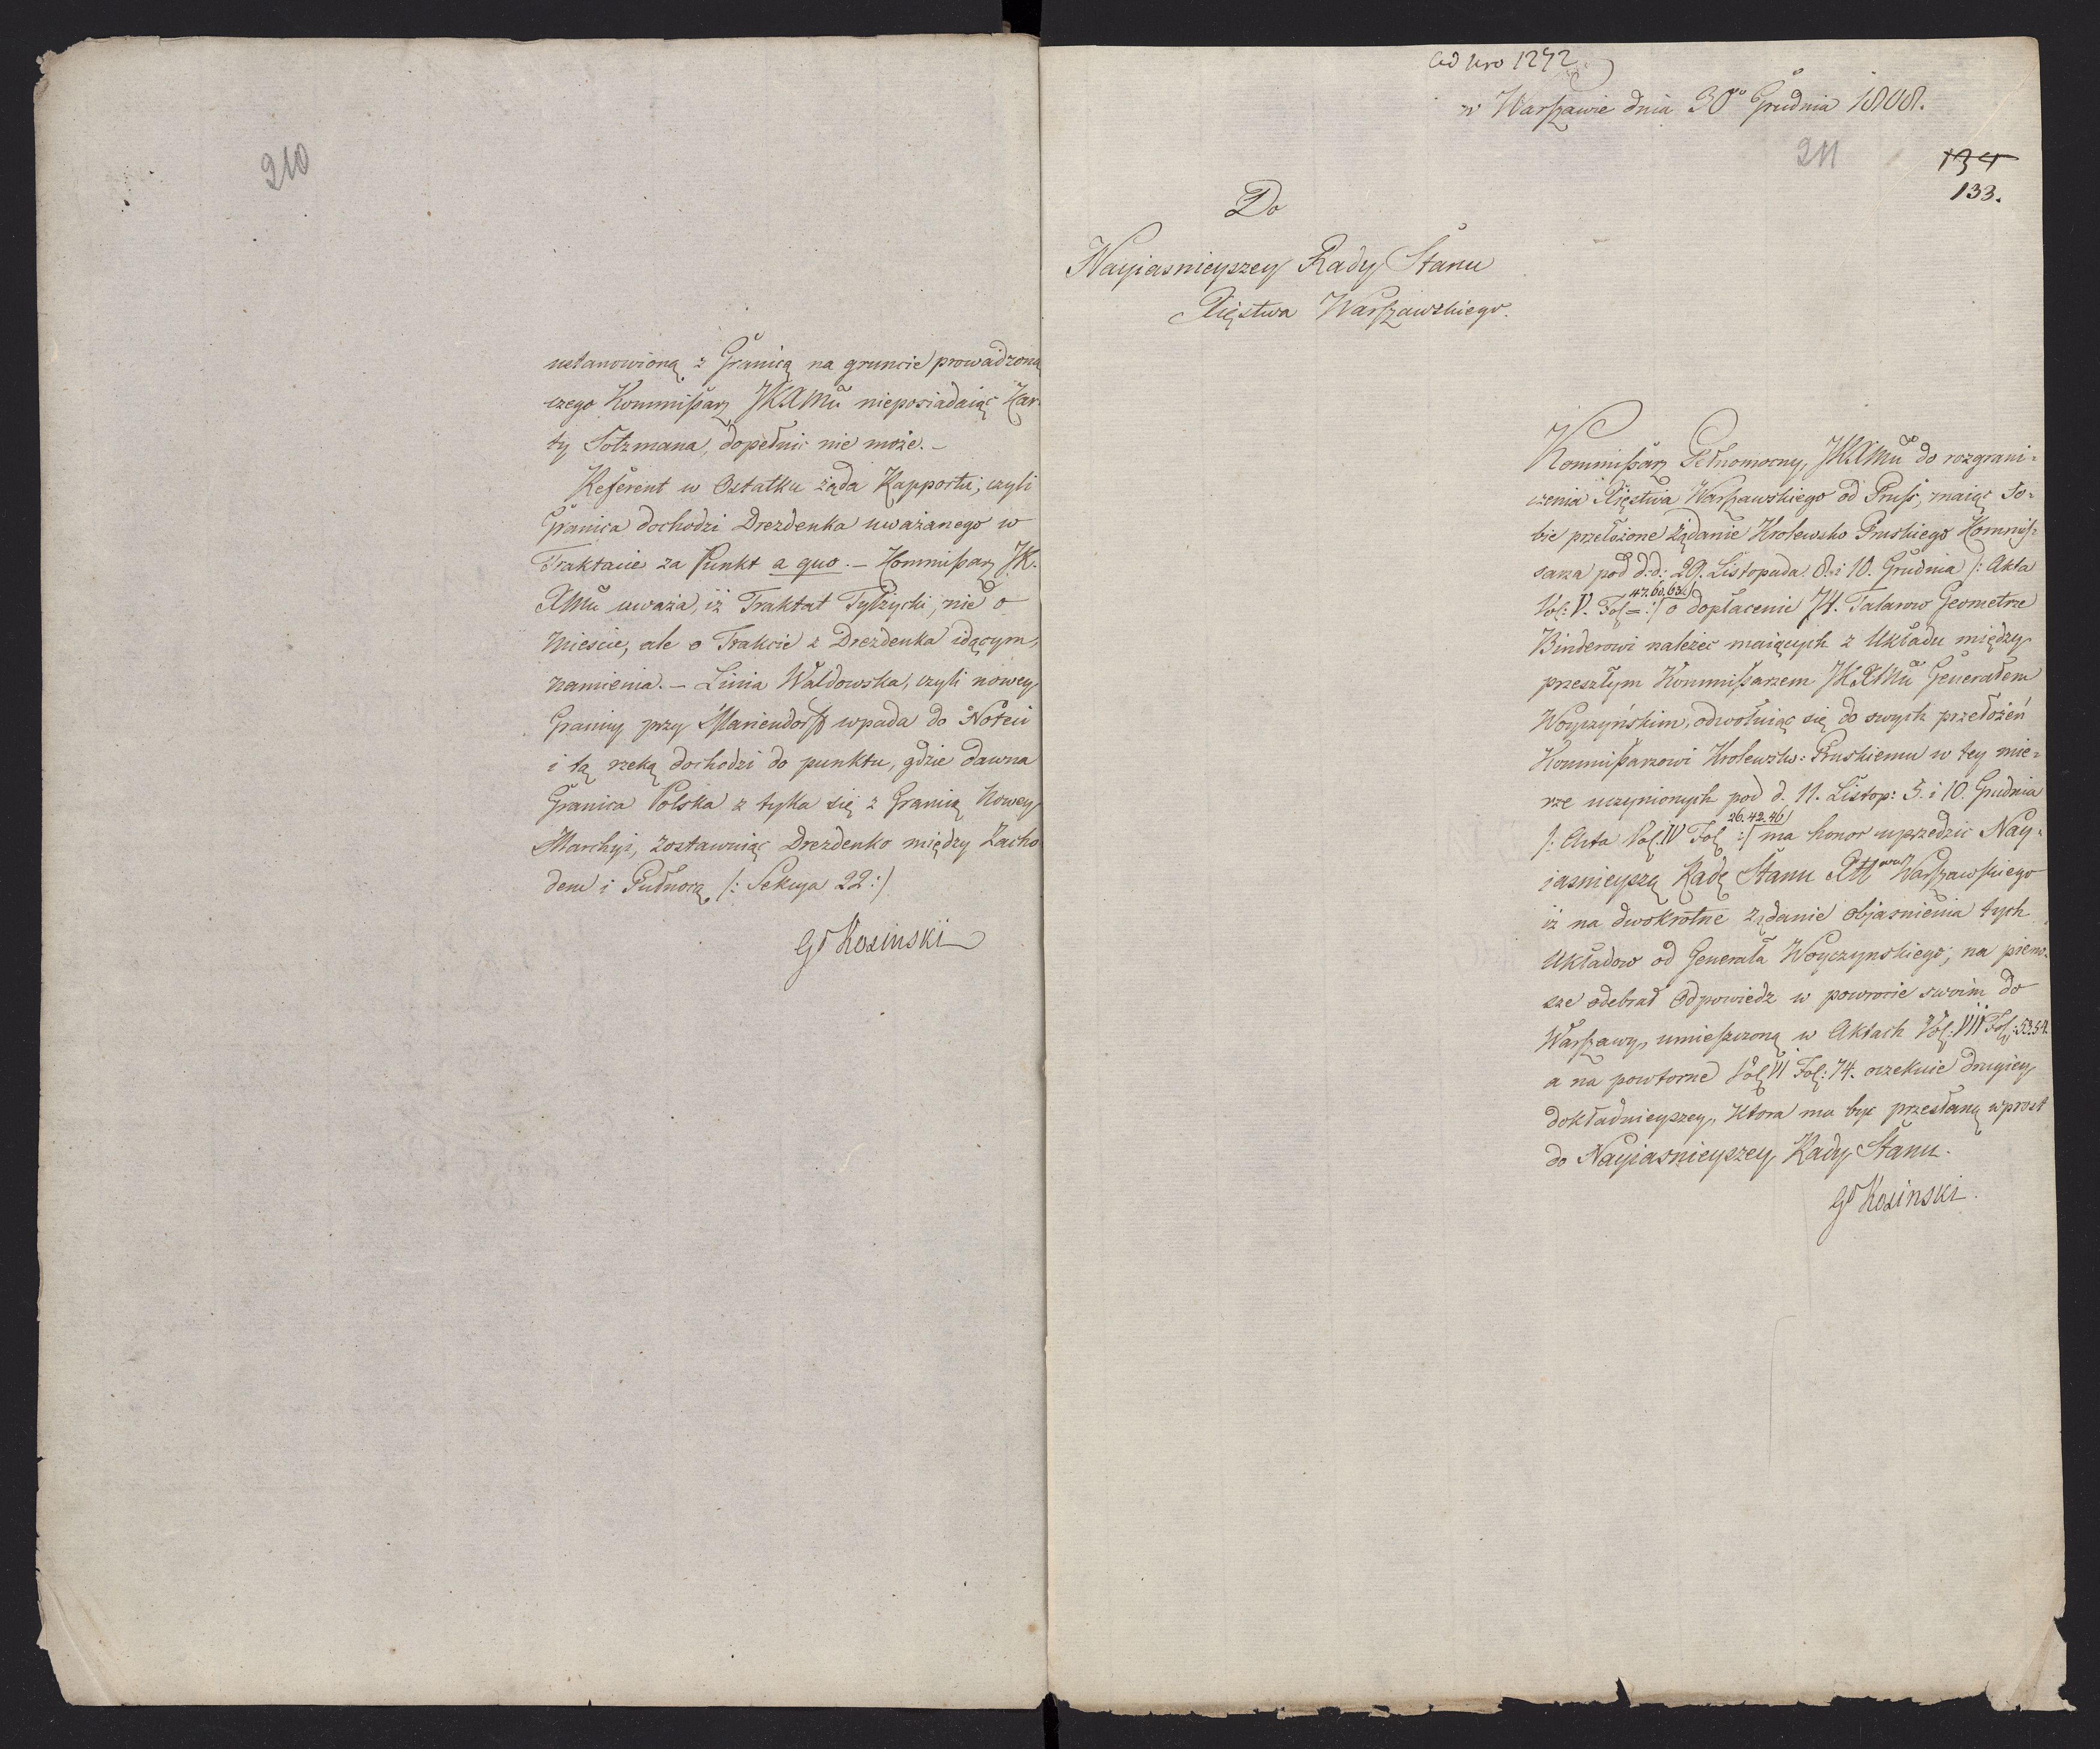 210
ustanowioną z Granicą na gruncie prowadzoną
czego Kommißarz JKXMči nieposiadaiąc Kar-
ty Sotzmana, dopełnić nie może. –
Referent w Ostatku żąda Rapportu, czyli
Granica dochodzi Drezdenka uważanego w
Traktacie za Punkt a quo. – Kommißarz JK.
XMči uważa, iż Traktat Tylżycki, nie o
Mieście, ale o Trakcie z Drezdenka idącym,
namienia. – Linia Waldowska, czyli nowey
Granicy przy Mariendorff wpada do Noteci
i tą rzeką dochodzi do punktu, gdzie dawna
Granica Polska z tyka się z Granicą Nowey
Marchyi, zostawuiąc Drezdenko między Zacho
dem i Pułnocą /: Sekcya 22 :/
Gł Kosinski
ad Nro 1272
w Warszawie dnia 30go Grudnia 1808.
211
134
133.
Do
Nayiasnieyszey Rady Stanu
Xięstwa Warszawskiego.
Kommißarz Pełnomocny, JKXMči do rozgrani-
czenia Xięstwa Warszawskiego od Pruß, maiąc so-
bie przełożone żądanie Krolewsko Pruskiego Kommis-
sarza pod d: d: 29. Listopada. 8. i 10. Grudnia /: Akta
Vol: V. Fol = 47. 60. 63. :/ o dopłacenie 74. Talarow Geometrze
Binderowi należec maiących z Układu między
przeszłym Kommißarzem JKXMči Generałem
Woyczyńskim, odwołuiąc się do swych przełożeń
Kommißarzowi Krolewsko: Pruskiemu w tey mie-
rze uczynionych pod d. 11. Listop: 5. i 10. Grudnia
/: Acta Vol. IV Fol 26. 42. 46 :/ ma honor uprzedzic Nay-
iasnieyszą Radę Stanu Xttwa Warszawskiego
iż na dwokrotne żądanie objasnienia tych
Układow od Generała Woyczynskiego; na pierw-
sze odebrał Odpowiedz w powrocie swoim do
Warszawy, umieszczoną w Aktach Vol: VII Fol: 53. 54.
a na powtorne Vol VI Fol: 74. oczekuie drugiey
dokładnieyszey, Ktora ma byc przesłaną wprost
do Nayiasnieyszey Rady Stanu.
Gł Kosinski.